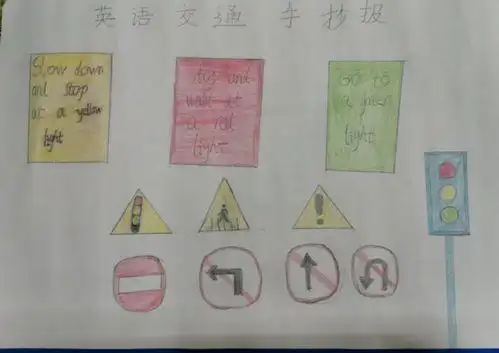 英语交通手抄报
Slow down
and stop
at a yellow
light
stop and
wait at
a red
light
Go to
a green
light